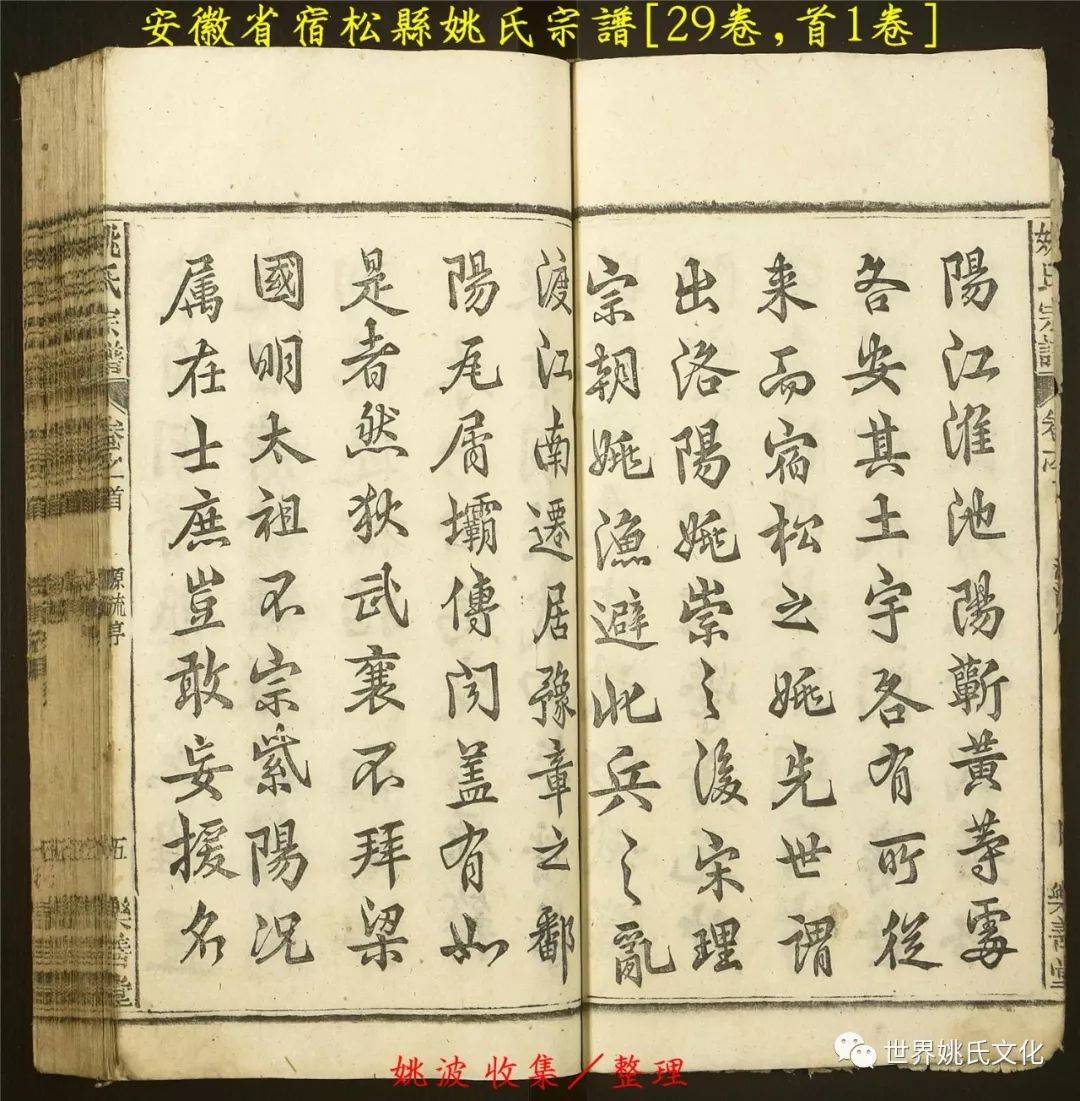 安徽省宿松縣姚氏宗譜[29卷,首1卷]
姚氏宗譜
陽江淮池陽蘄黃等處
各安其土宇各有所從
来而宿松之姚先世謂
出洛陽姚崇之後宋理
宗朝姚漁避北兵之亂
渡江南遷居豫章之鄱
陽瓦屑壩傳闻盖有如
是者然狄武襄不拜梁
國明太祖不宗紫陽况
属在士庶豈敢妄援名
姚氏宗譜
卷之首
源流序
五
樂善堂
姚波收集/整理
世界姚氏文化